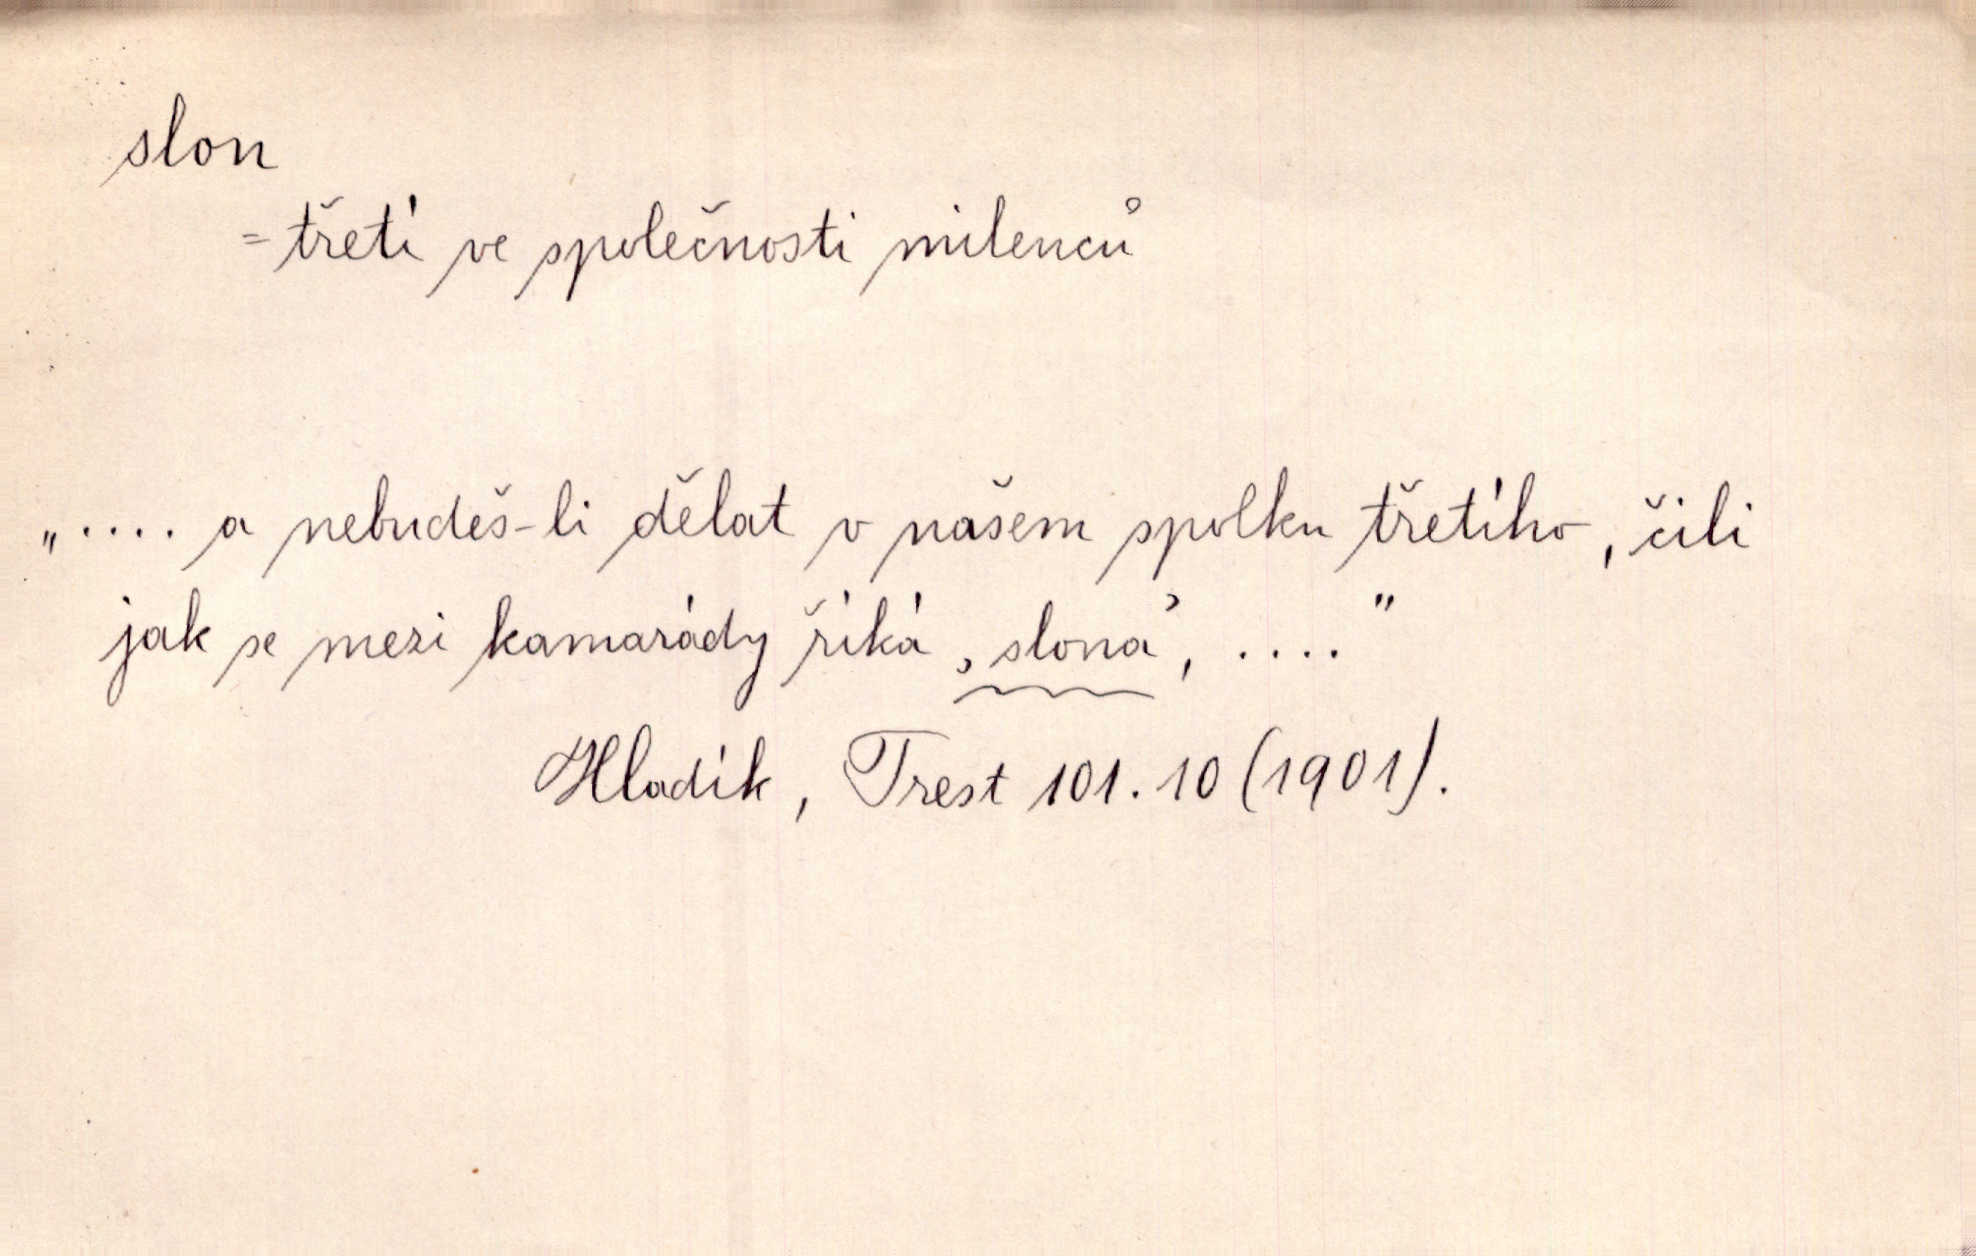 slon
= třetí ve společnosti milenců
„.... a nebudeš-li dělat v našem spolku třetího, čili
jak se mezi kamarády říká ‚slona‘, ....”
Hladík, Trest 101.10 (1901).